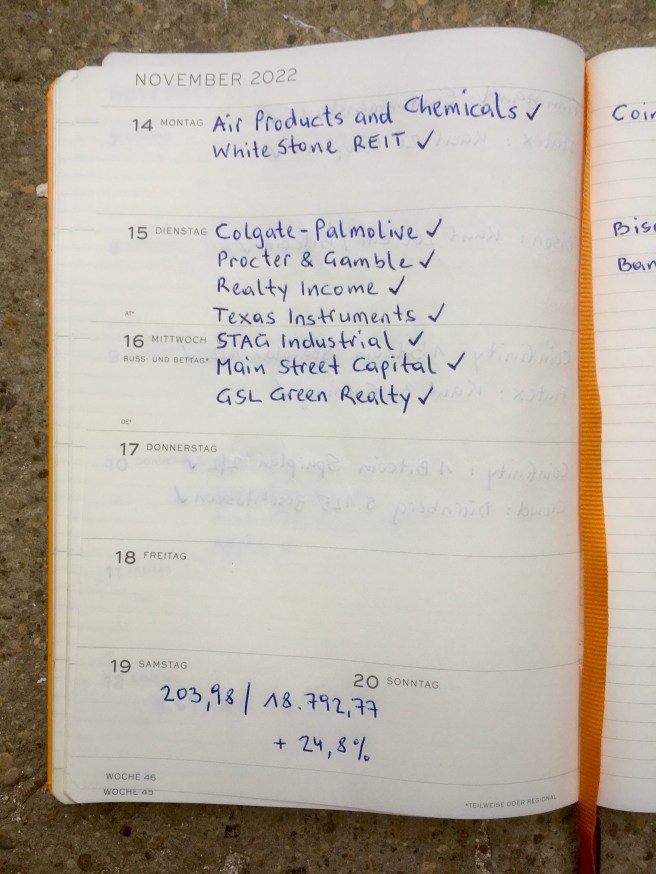 NOVEMBER 2022
14 MONTAG Air Products and Chemicals ✓
White Stone REIT ✓
15 DIENSTAG Colgate-Palmolive ✓
Procter & Gamble ✓
Realty Income ✓
Texas Instruments ✓
16 MITTWOCH STAG Industrial ✓
BUSS- UND BETTAG* Main Street Capital ✓
GSL Green Realty ✓
DE*
17 DONNERSTAG
18 FREITAG
19 SAMSTAG
20 SONNTAG
203,98 / 18.792,77
+ 24,8%
WOCHE 46
WOCHE 45
*TEILWEISE ODER REGIONAL